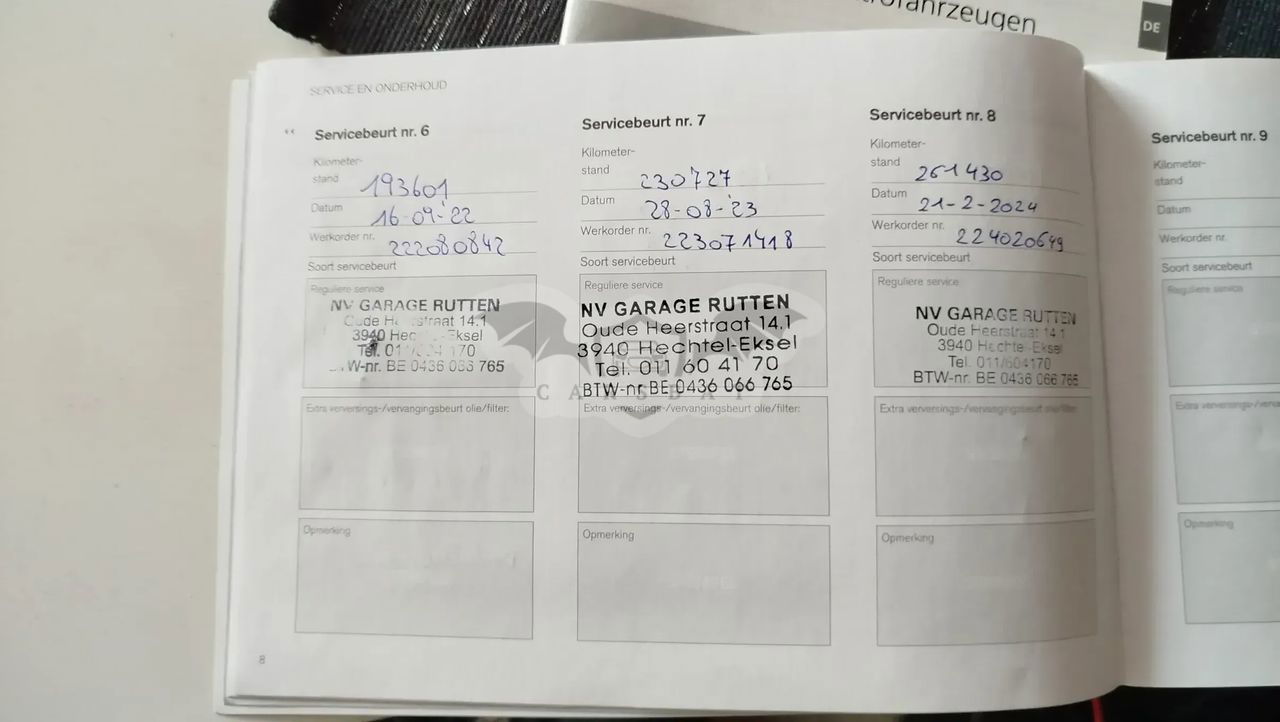 trofahrzeugen
DE
SERVICE EN ONDERHOUD
Servicebeurt nr. 6
Kilometer-
stand 193601
Datum 16-09-'22
Werkorder nr. 222080842
Soort servicebeurt
Reguliere service
NV GARAGE RUTTEN
Oude Heerstraat 14.1
3940 Hechtel-Eksel
Tel.
BTW-nr. BE 0436 066 765
Extra verversings-/vervangingsbeurt olie/filter:
Opmerking
8
Servicebeurt nr. 7
Kilometer-
stand 230727
Datum 28-08-'23
Werkorder nr. 223071418
Soort servicebeurt
Reguliere service
NV GARAGE RUTTEN
Oude Heerstraat 14.1
3940 Hechtel-Eksel
Tel. 011 60 41 70
BTW-nr. BE 0436 066 765
CARSBAT
Extra verversings-/vervangingsbeurt olie/filter:
Opmerking
Servicebeurt nr. 8
Kilometer-
stand 261430
Datum 21-2-2024
Werkorder nr. 224020649
Soort servicebeurt
Reguliere service
NV GARAGE RUTTEN
Oude Heerstraat 14.1
3940 Hechtel-Eksel
Tel. 011/604170
BTW-nr. BE 0436 066 765
Extra verversings-/vervangingsbeurt olie/filter:
Opmerking
Servicebeurt nr. 9
Kilometer-
stand
Datum
Werkorder nr.
Soort servicebeurt
Reguliere service
Extra verversings-/verva
Opmerking